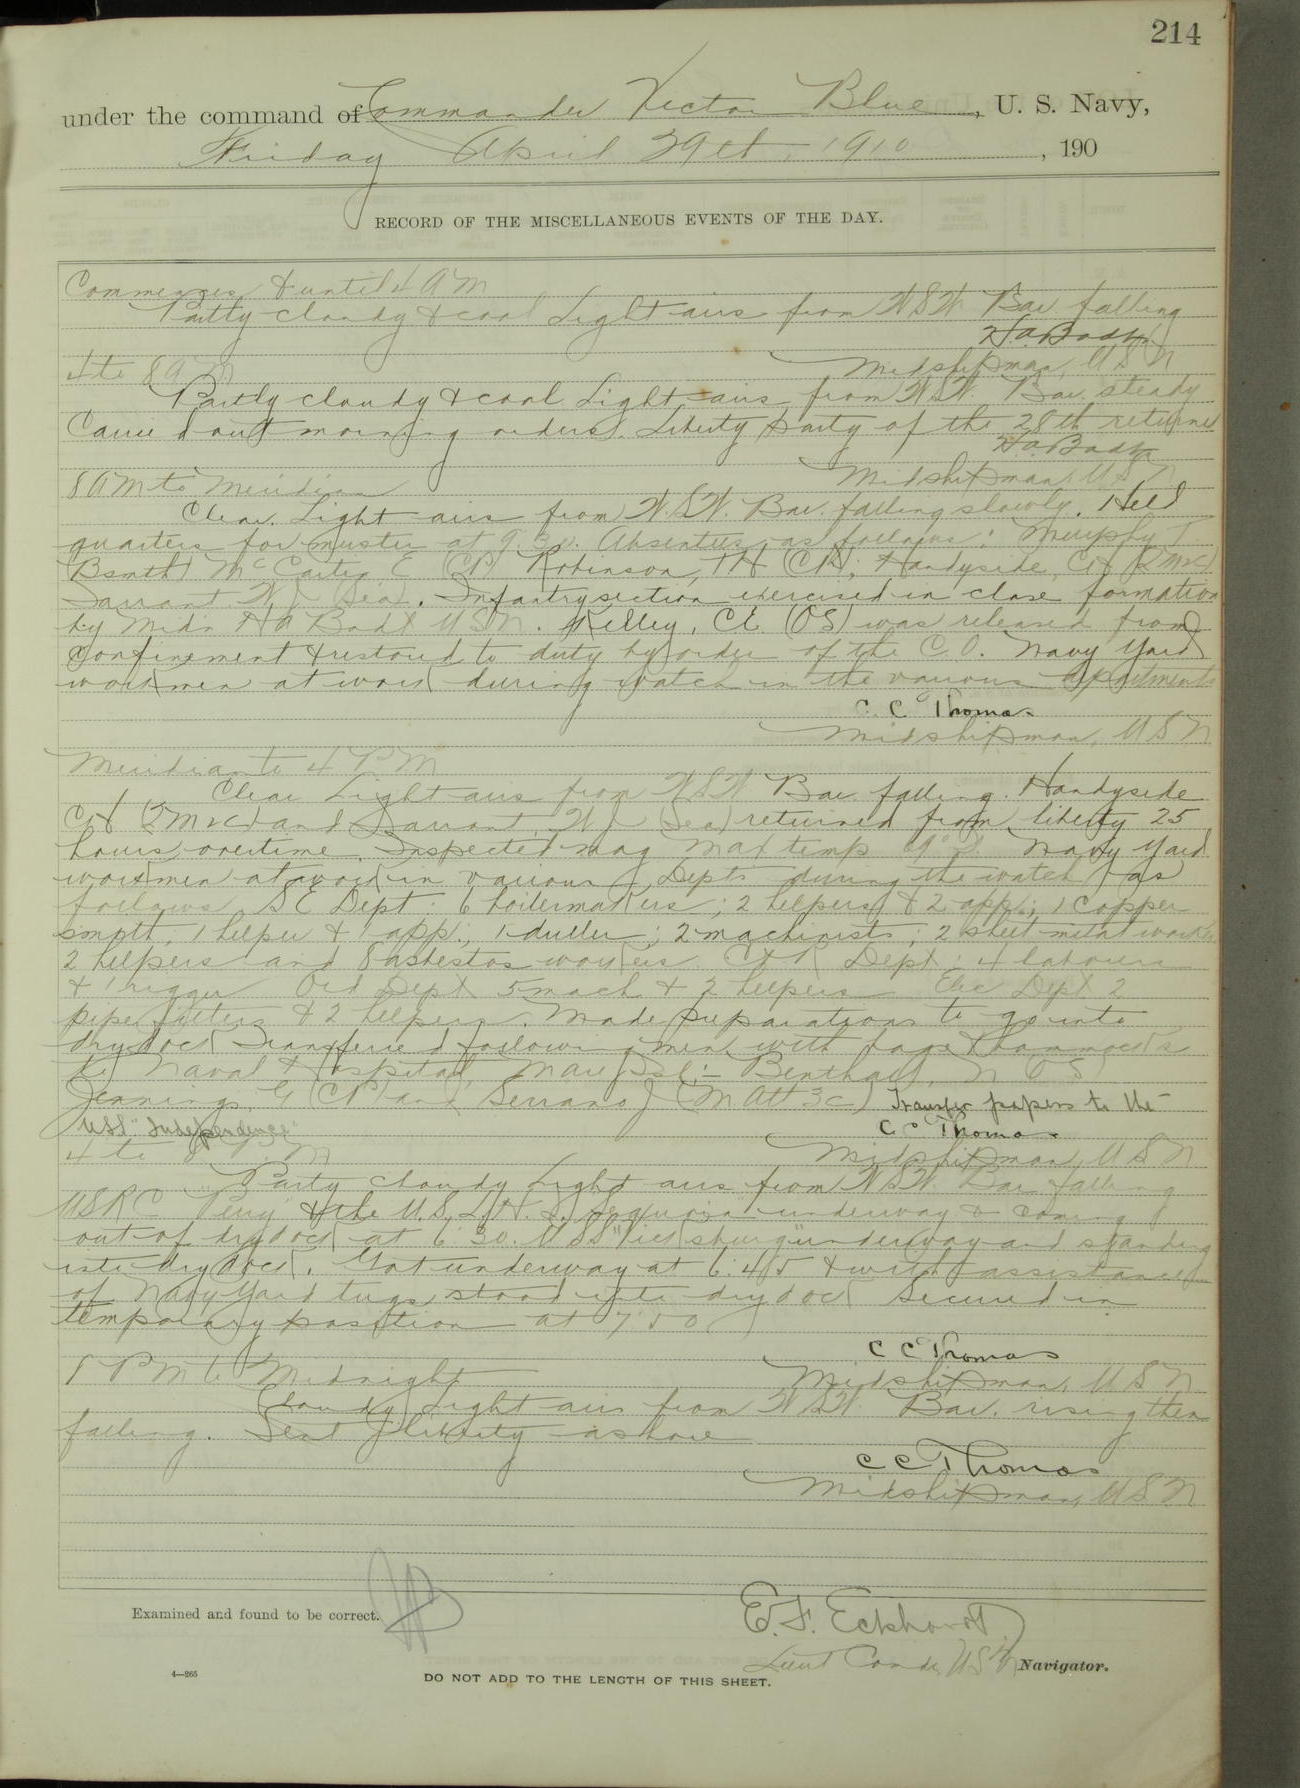 214
under the command of Commander Victor Blue, U. S. Navy,
Friday April 29th, 1910, 190
RECORD OF THE MISCELLANEOUS EVENTS OF THE DAY.
Commences & until 4 AM
Partly cloudy & cool Light airs from WSW Bar falling
H.A. Badt
4 to 8 AM
Midshipman, USN
Partly cloudy & cool Light airs from WSW. Bar. steady
Carried out morning orders. Liberty party of the 28th returned
H.A. Badt
Midshipman, USN
8 AM to Meridian
Clear. Light airs from W.S.W. Bar. falling slowly. Held
quarters for muster at 9.30. Absentees as follows: Murphy T.
Bsmth McCarter, E (CP) Robinson, (CP); Handyside, CH
Tarrant W J (Sea). Infantry section exercised in close formation
by Midn HA Badt USN. Kelley, CE (OS) was released from
confinement & restored to duty by order of the C.O. Navy Yard
workmen at work during watch in the various departments
C. C. Thomas
Midshipman, USN
Meridian to 4 PM
Clear Light airs from WSW Bar falling. Handyside
CH and Tarrant, W J (Sea) returned from liberty 25
hours overtime. Inspected mag Max temp Navy Yard
workmen at work in various Depts during the watch as
follows S E Dept: 6 boilermakers; 2 helpers & 2 app.; 1 copper
smith, 1 helper & 1 app.; 1 driller; 2 machinists; 2 sheet metal workers
2 helpers and 8 asbestos workers. C&R Dept: 4 laborers
& 1 rigger Ord Dept 5 mach & 2 helpers Elec Dept 2
pipe fitters & 2 helpers. Made preparations to go into
dry dock Transferred following men with bags & hammocks
to Naval Hospital, Mare Isl:- Benthall, N (OS)
Jennings, G (CP) and Serrano J (M Att 3c) Transfer papers to the
USS "Independence"
C C Thomas
4 to 8 PM
Midshipman, USN
Partly cloudy Light airs from WSW. Bar falling
USRC Perry & the U.S.L.H.S. Sequoia underway & coming
out of dry dock at 6:30. USS "Vicksburg" underway and standing
into dry dock. Got underway at 6:45 & with assistance
of Navy Yard tugs stood into dry dock Secured in
temporary position at 7:50
C C Thomas
8 PM to Midnight
Midshipman, USN
Cloudy Light airs from WSW Bar. rising then
falling. Sent liberty ashore
C C Thomas
Midshipman, USN
Examined and found to be correct.
E. F. Eckhardt
Lieut Comdr, USN Navigator.
4—265
DO NOT ADD TO THE LENGTH OF THIS SHEET.